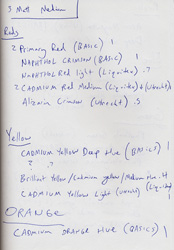 Reds
2 Primary Red (BASIC) 1
NAPHTHOL CRIMSON (BASIC) 1
NAPHTHOL Red Light (Liquitex) .7
2 CADMIUM Red Medium (Liquitex) + (Utrecht)
Alizarin Crimson (Utrecht) .5
Yellow
CADMIUM Yellow Deep Hue (BASICS) 1
Brilliant Yellow/Cadmium Yellow/Medium Hue
CADMIUM Yellow Light (Utrecht) (Liquitex) 1
ORANGE
CADMIUM ORANGE Hue (BASICS) 1